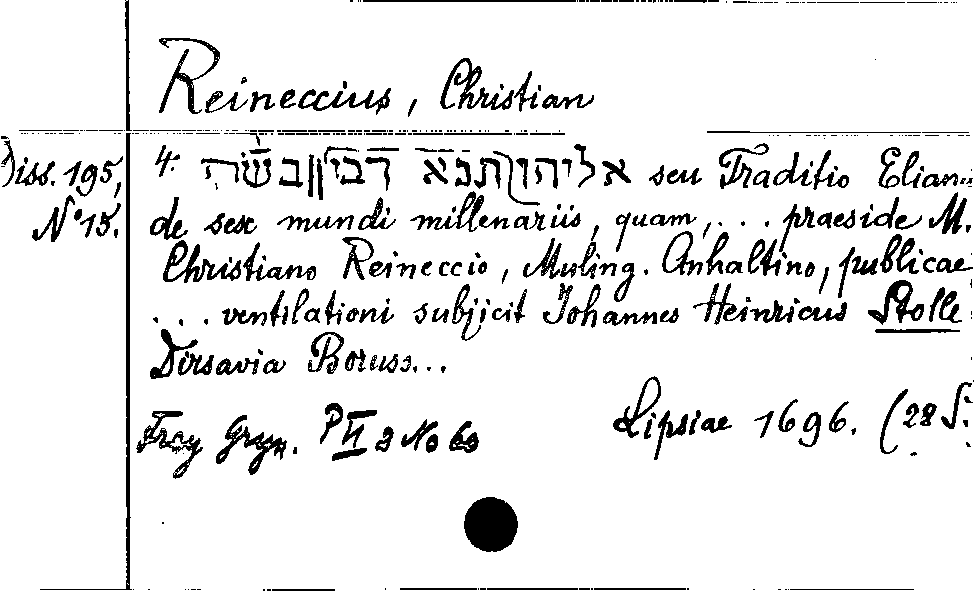 Reineccius, Christian
Diss. 195,
N° 15.
4. seu Traditio Elian
de sex mundi millenariis, quam, ... praeside M.
Christiano Reineccio, Muling. Anhaltino, publicae
... ventilationi subjicit Johannes Heinricus Stolle
Dirsavia Boruss...
Lipsiae 1696. (28 S.
Gryn. P II 3 No 60